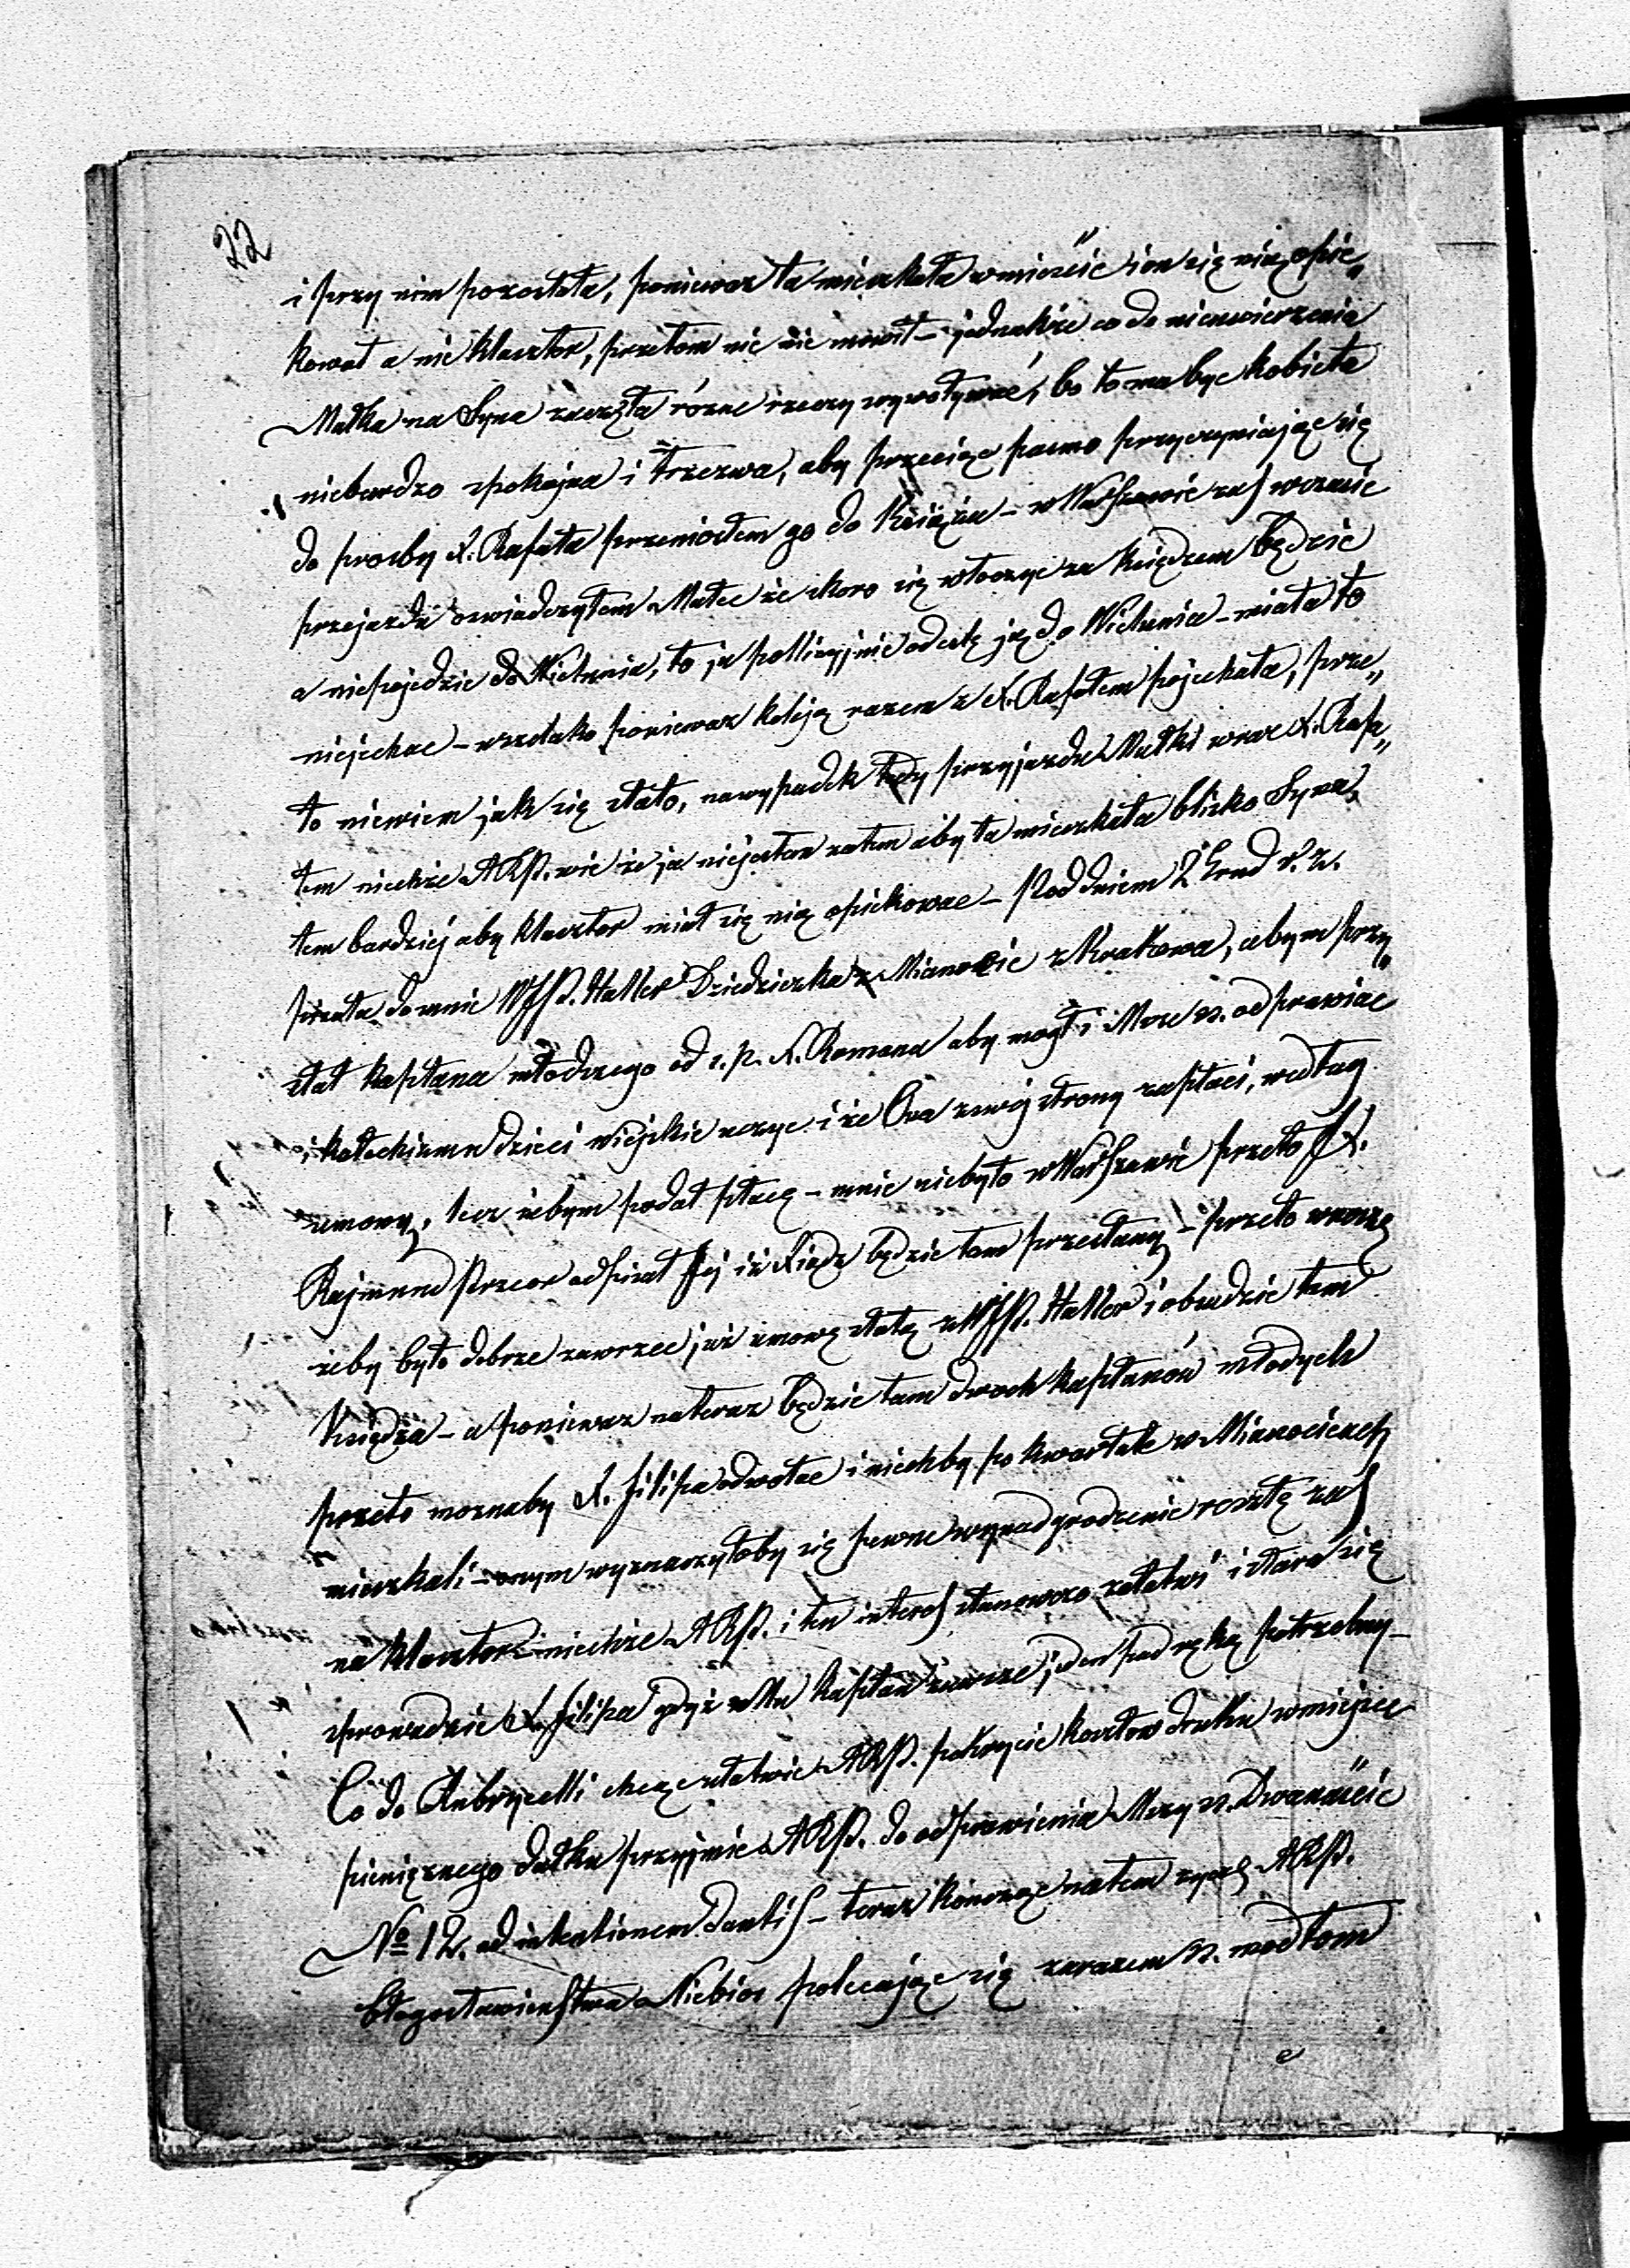 22
i przy nim pozostała, ponieważ ta mieszkała w mieście i on się nią opie„
kował a nie klasztor, przetom nic nie mówił – jednakże co do nieuwierzenia
Matka na Syna zaczęła rózne rzeczy wywoływać, bo to ma być kobieta
niebardzo spokojna i trzezwa, aby przeciąc pasmo przyczyniając się
do prosby X. Rafała przeniosłem go do Książa – w Warszawie zas w czasie
przejazdu oswiadczyłem Matce że skoro się włoczyc za księdzem będzie
a niepojedzie do Wielunia, to ja pollicyjnie odeslę ją do Wielunia – miała to
niejechac – wszelako poniewaz koleją razem z X. Rafałem pojechała, prze„
to niewiem jak się stało, nawypadek tedy przyjazdu Matki wraz X. Rafa„
łem niechże ARP. wie że ja niejestem zatem aby ta mieszkała blisko Syna,
tem bardziej aby klasztor miał się nią opiekowac – Pod dniem 2 Grud r. z.
pisała do mnie WJP. Haller Dziedziczka z Mianocic z Krakowa, abym przy„
słał kapłana młodszego od s. p. X. Romana aby mogł i Msze s. odprawiac
i katechizmu dzieci wiejskie uczyc i że Ona zswej strony zapłaci, według
umowy, lecz żebym podał płacę – mnie niebyło w Warszawie przeto JX.
Rajmund Przeor odpisał Jej iż Xiądz będzie tam przesłany – przeto wnoszę
żeby było dobrze zawrzec już umowę stałą z WJP. Haller i obsadzic tam
Księdza – a poniewaz nateraz będzie tam dwoch kapłanów młodych
przeto moznaby X. Filipa odwołac i niechby po kwartale w Mianocicach
mieszkali – onym wyznaczyłoby się pewne wynadgrodzenie resztę zas
na klasztor – niechże ARP. i ten interes stanowczo załatwi i stara się
sprowadzic X. Filipa gdyż tu kapłan zawsze jeden pod ręką potrzebny –
Co do Rubrycelli chcąc ułatwic ARP. pokrycie kosztow druku w miejsce
pieniężnego datku przyjmie ARP. do odprawienia Mszy s. Dwanaście
№ 12. ad intentionem dantis – teraz kończąc natem zyczę ARP.
błogosławienstwa Niebios polecając się zarazem S. modłom